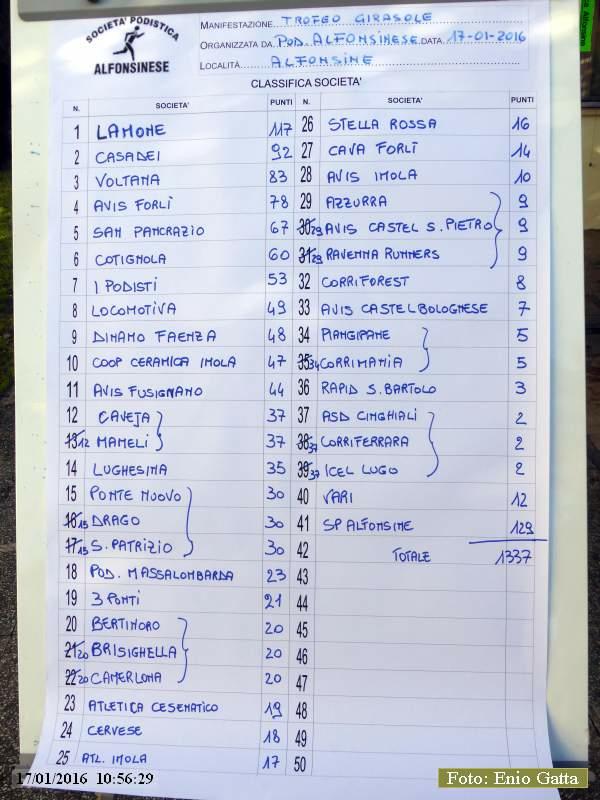 SOCIETA' PODISTICA
ALFONSINESE
MANIFESTAZIONE TROFEO GIRASOLE
ORGANIZZATA DA POD. ALFONSINESE DATA 17-01-2016
LOCALITÀ ALFONSINE
CLASSIFICA SOCIETA'
N. SOCIETA' PUNTI N. SOCIETA' PUNTI
1 LAMONE 117
2 CASADEI 92
3 VOLTANA 83
4 AVIS FORLÌ 78
5 SAN PANCRAZIO 67
6 COTIGNOLA 60
7 I PODISTI 53
8 LOCOMOTIVA 49
9 DINAMO FAENZA 48
10 COOP CERAMICA IMOLA 47
11 AVIS FUSIGNANO 44
12 CAVEJA 37
13/12 MAMELI 37
14 LUGHESINA 35
15 PONTE NUOVO 30
16/15 DRAGO 30
17/15 S. PATRIZIO 30
18 POD. MASSALOMBARDA 23
19 3 PONTI 21
20 BERTINORO 20
21/20 BRISIGHELLA 20
22/20 CAMERLONA 20
23 ATLETICA CESENATICO 19
24 CERVESE 18
25 ATL. IMOLA 17
26 STELLA ROSSA 16
27 CAVA FORLÌ 14
28 AVIS IMOLA 10
29 AZZURRA 9
30/29 AVIS CASTEL S. PIETRO 9
31/29 RAVENNA RUNNERS 9
32 CORRIFOREST 8
33 AVIS CASTELBOLOGNESE 7
34 PIANGIPANE 5
35/34 CORRIMANIA 5
36 RAPID S. BARTOLO 3
37 ASD CINGHIALI 2
38/37 CORRIFERRARA 2
39/37 ICEL LUGO 2
40 VARI 12
41 SP ALFONSINE 129
42 TOTALE 1337
43
44
45
46
47
48
49
50
17/01/2016 10:56:29
Foto: Enio Gatta